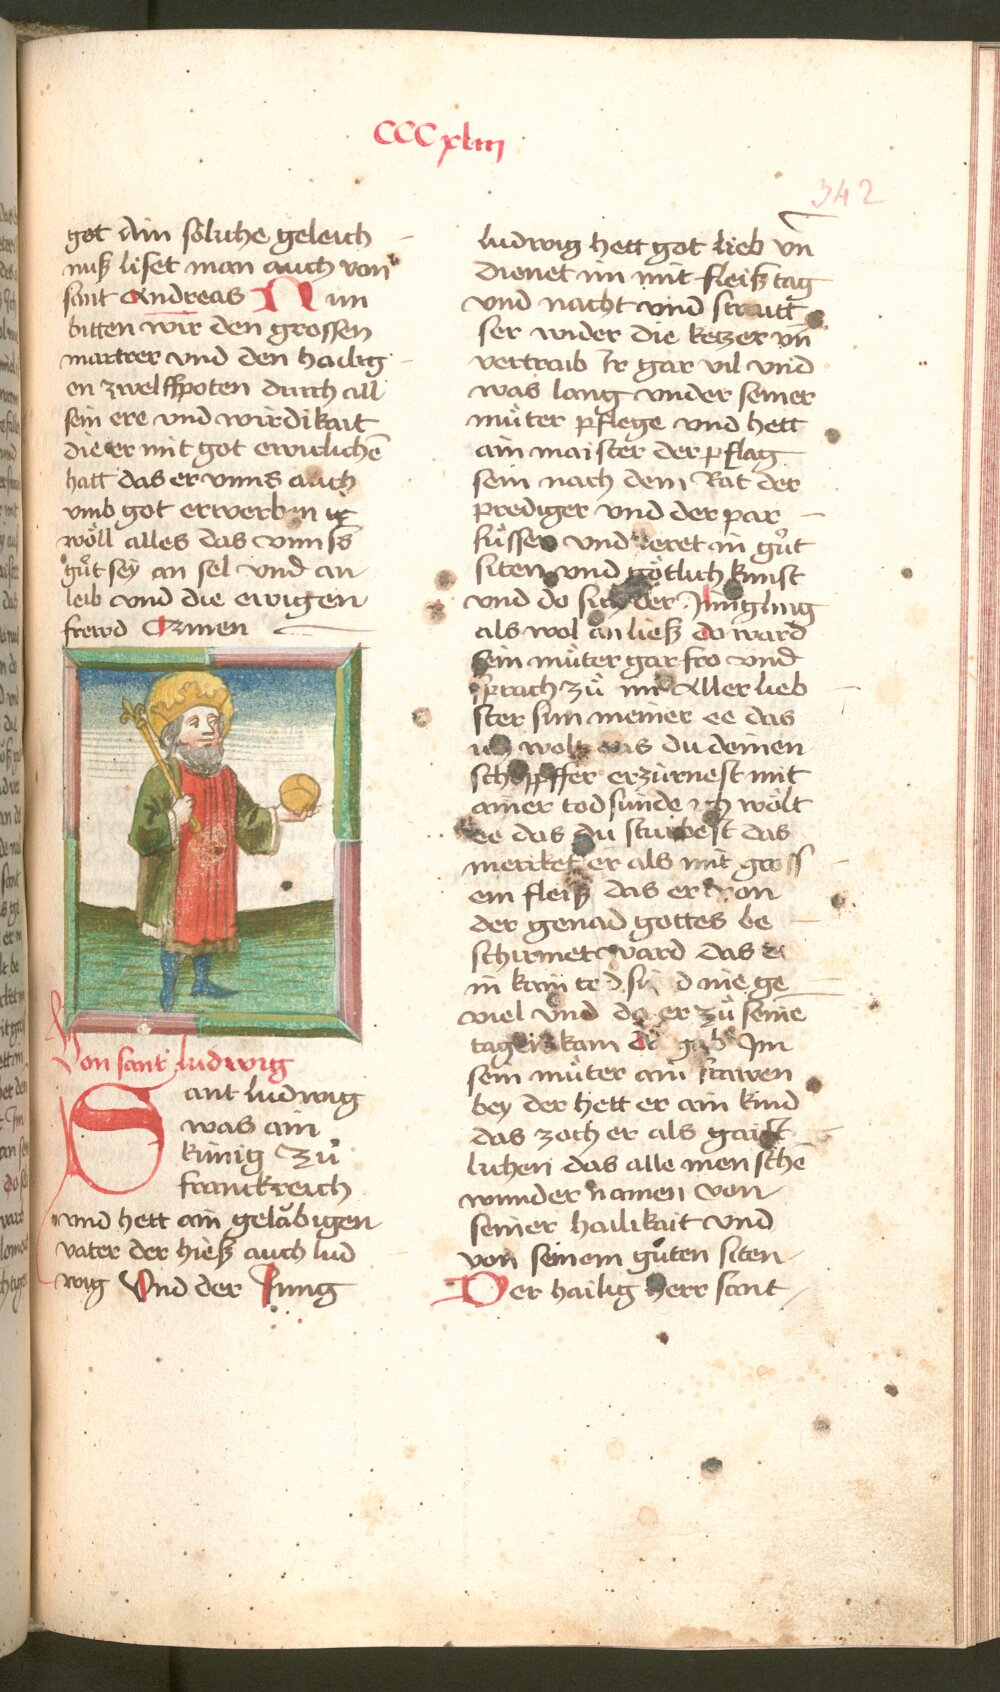 CCCxliii
342
got Ain sölliche geleich
nuß liset man auch von
sant Andreas Nun
bitten wir den grossen
martrer vnd den hailig
en zwelffpoten durch all
sein ere vnd wirdikait
die er mit got ewiclichē
hatt das er vnns auch
vmb got erwerben
wöll alles das vnns
gůt sey an sel vnd an
leib vnd die ewigen
frewd Amen
Von sant ludwig
Sant ludwig
was ain
künig zů
franckreich
vnd hett ain geläbigen
vater der hieß auch lud
wig Vnd der Jung
ludwig hett got lieb vn̄
dienet im mit fleiß tag
vnd nacht vnd straitt
ser wider die ketzer vn̄
vertraib Ir gar vil vnd
was lang vnder seiner
můter pflege vnd hett
ain maister der pflag
sein nach dem Rat der
prediger vnd der par
füssen vnd leret in gůt
siten vnd götlich kunst
vnd do sich der Jüngling
als wol an ließ do ward
sein můter gar fro vnd
sprach zů im Aller lieb
ster sun meiner ee das
ich wolt das du deinen
schöpffer erzürnest mit
ainer todsünde ich wölt
ee das du sturbest das
mercket er als mit gross
em fleiß das er von
der genad gottes be
schirmet ward das er
in kain todsünd nie ge
viel vnd do er zů seinē
tagen kam do gab Im
sein můter ain frawen
bey der hett er ain kind
das zoch er als gaist
lichen das alle menschē
wunder namen von
seiner hailikait vnd
von seinem gůten siten
Der hailig herr sant